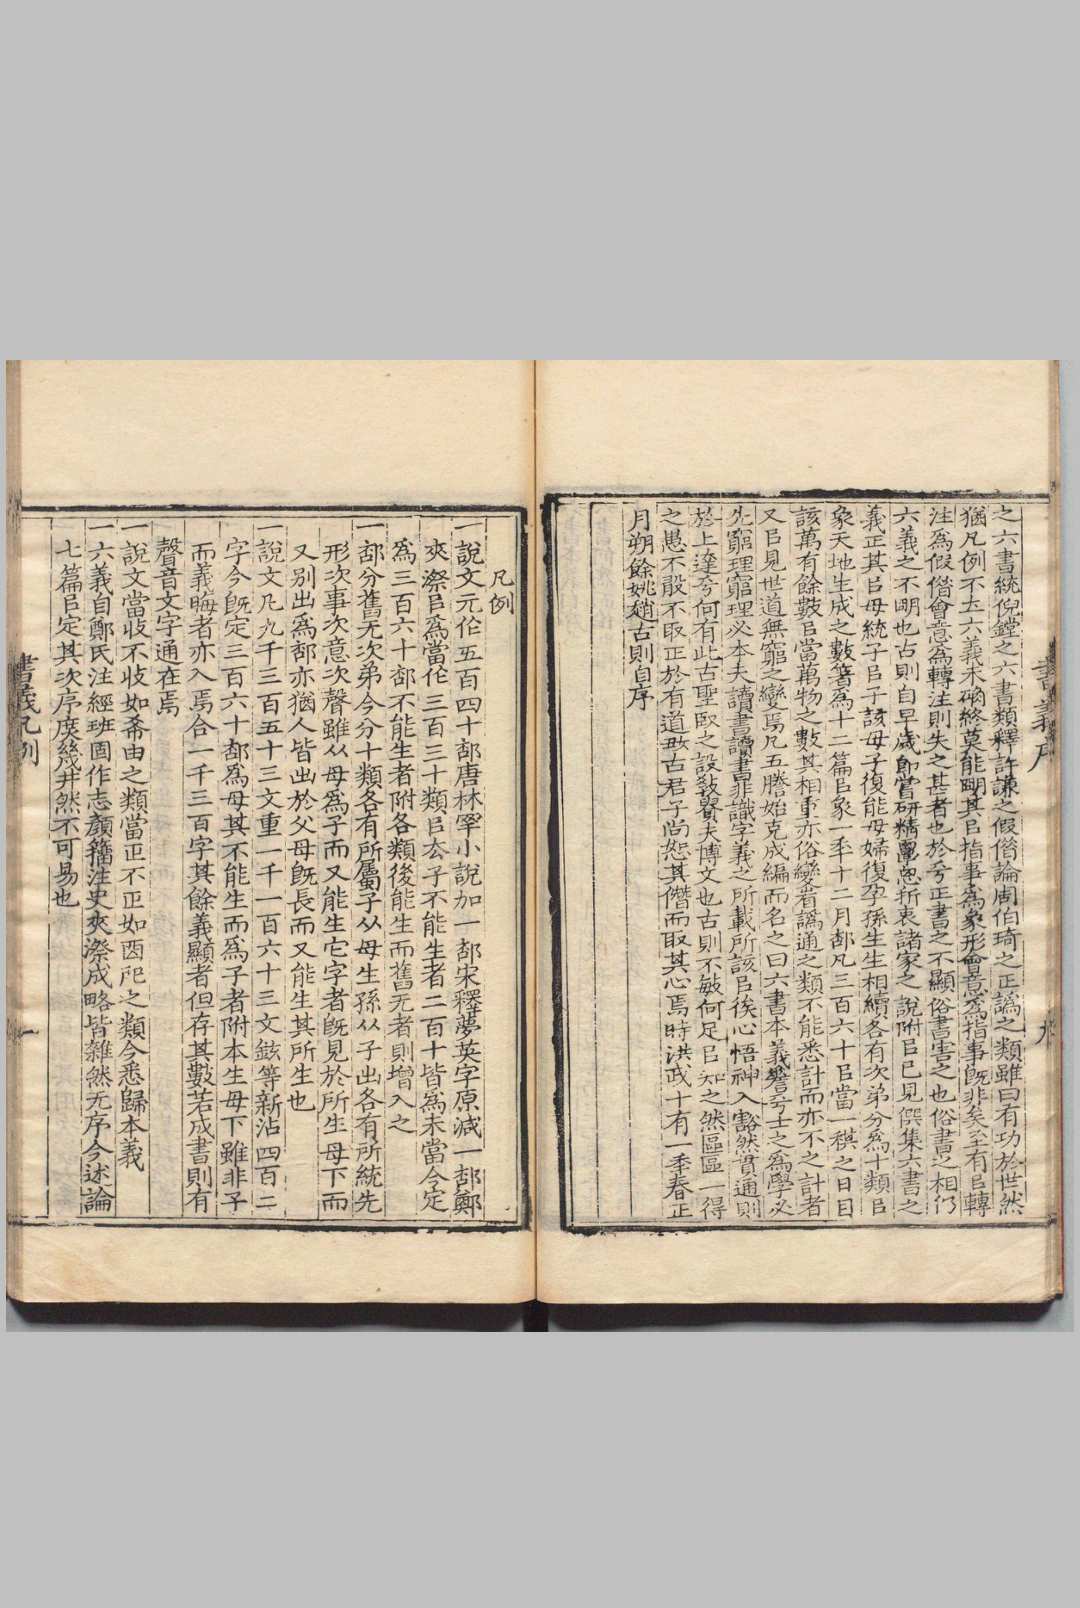 之六書統倪鏜之六書類釋許謙之假借論周伯琦之正譌之類雖曰有功於世然
猶凡例不立六義未确終莫能明其㠯指事爲象形會意爲指事旣非矣至有㠯轉
注爲假借會意爲轉注則失之甚者也於兮正書之不顯俗書害之也俗書之相仍
六義之不明也古則自早歲卽嘗研精覃思折衷諸家之說附㠯已見僎集六書之
義正其㠯母統子㠯子該母子復能母婦復孕孫生生相續各有次弟分爲十類㠯
象天地生成之數箸爲十二篇㠯象一秊十二月部凡三百六十㠯當一稘之日目
該萬有餘數㠯當萬物之數其相重亦俗變者譌通之類不能悉計而亦不之計者
又㠯見世道無窮之變焉凡五謄始克成編而名之曰六書本義嘗兮士之爲學必
先窮理窮理必本夫讀書讀書非識字義之所載所該㠯俟心悟神入豁然貫通則
於上達兮何有此古聖臤之設敎賢夫博文也古則不敏何足㠯知之然區區一得
之愚不設不取正於有道敢古君子尚恕其僭而取其心焉時洪武十有一秊春正
月朔餘姚趙古則自序
書義序
九
凡例
一說文元作五百四十部唐林罕小說加一部宋釋夢英字原減一部鄭
夾漈㠯爲當作三百三十類㠯去子不能生者二百十皆爲未當今定
爲三百六十部不能生者附各類後能生而舊无者則增入之
一部分舊无次弟今分十類各有所屬子从母生孫从子出各有所統先
形次事次意次聲雖从母爲子而又能生它字者旣見於所生母下而
又別出爲部亦猶人皆出於父母旣長而又能生其所生也
一說文凡九千三百五十三文重一千一百六十三文鉉等新沾四百二
字今旣定三百六十部爲母其不能生而爲子者附本生母下雖非子
而義晦者亦入焉合一千三百字其餘義顯者但存其數若成書則有
聲音文字通在焉
一說文當收不收如希由之類當正不正如囟戺之類今悉歸本義
一六義自鄭氏注經班固作志顏籀注史夾漈成略皆雜然无序今述論
七篇㠯定其次序庶幾井然不可易也
書義凡例
一